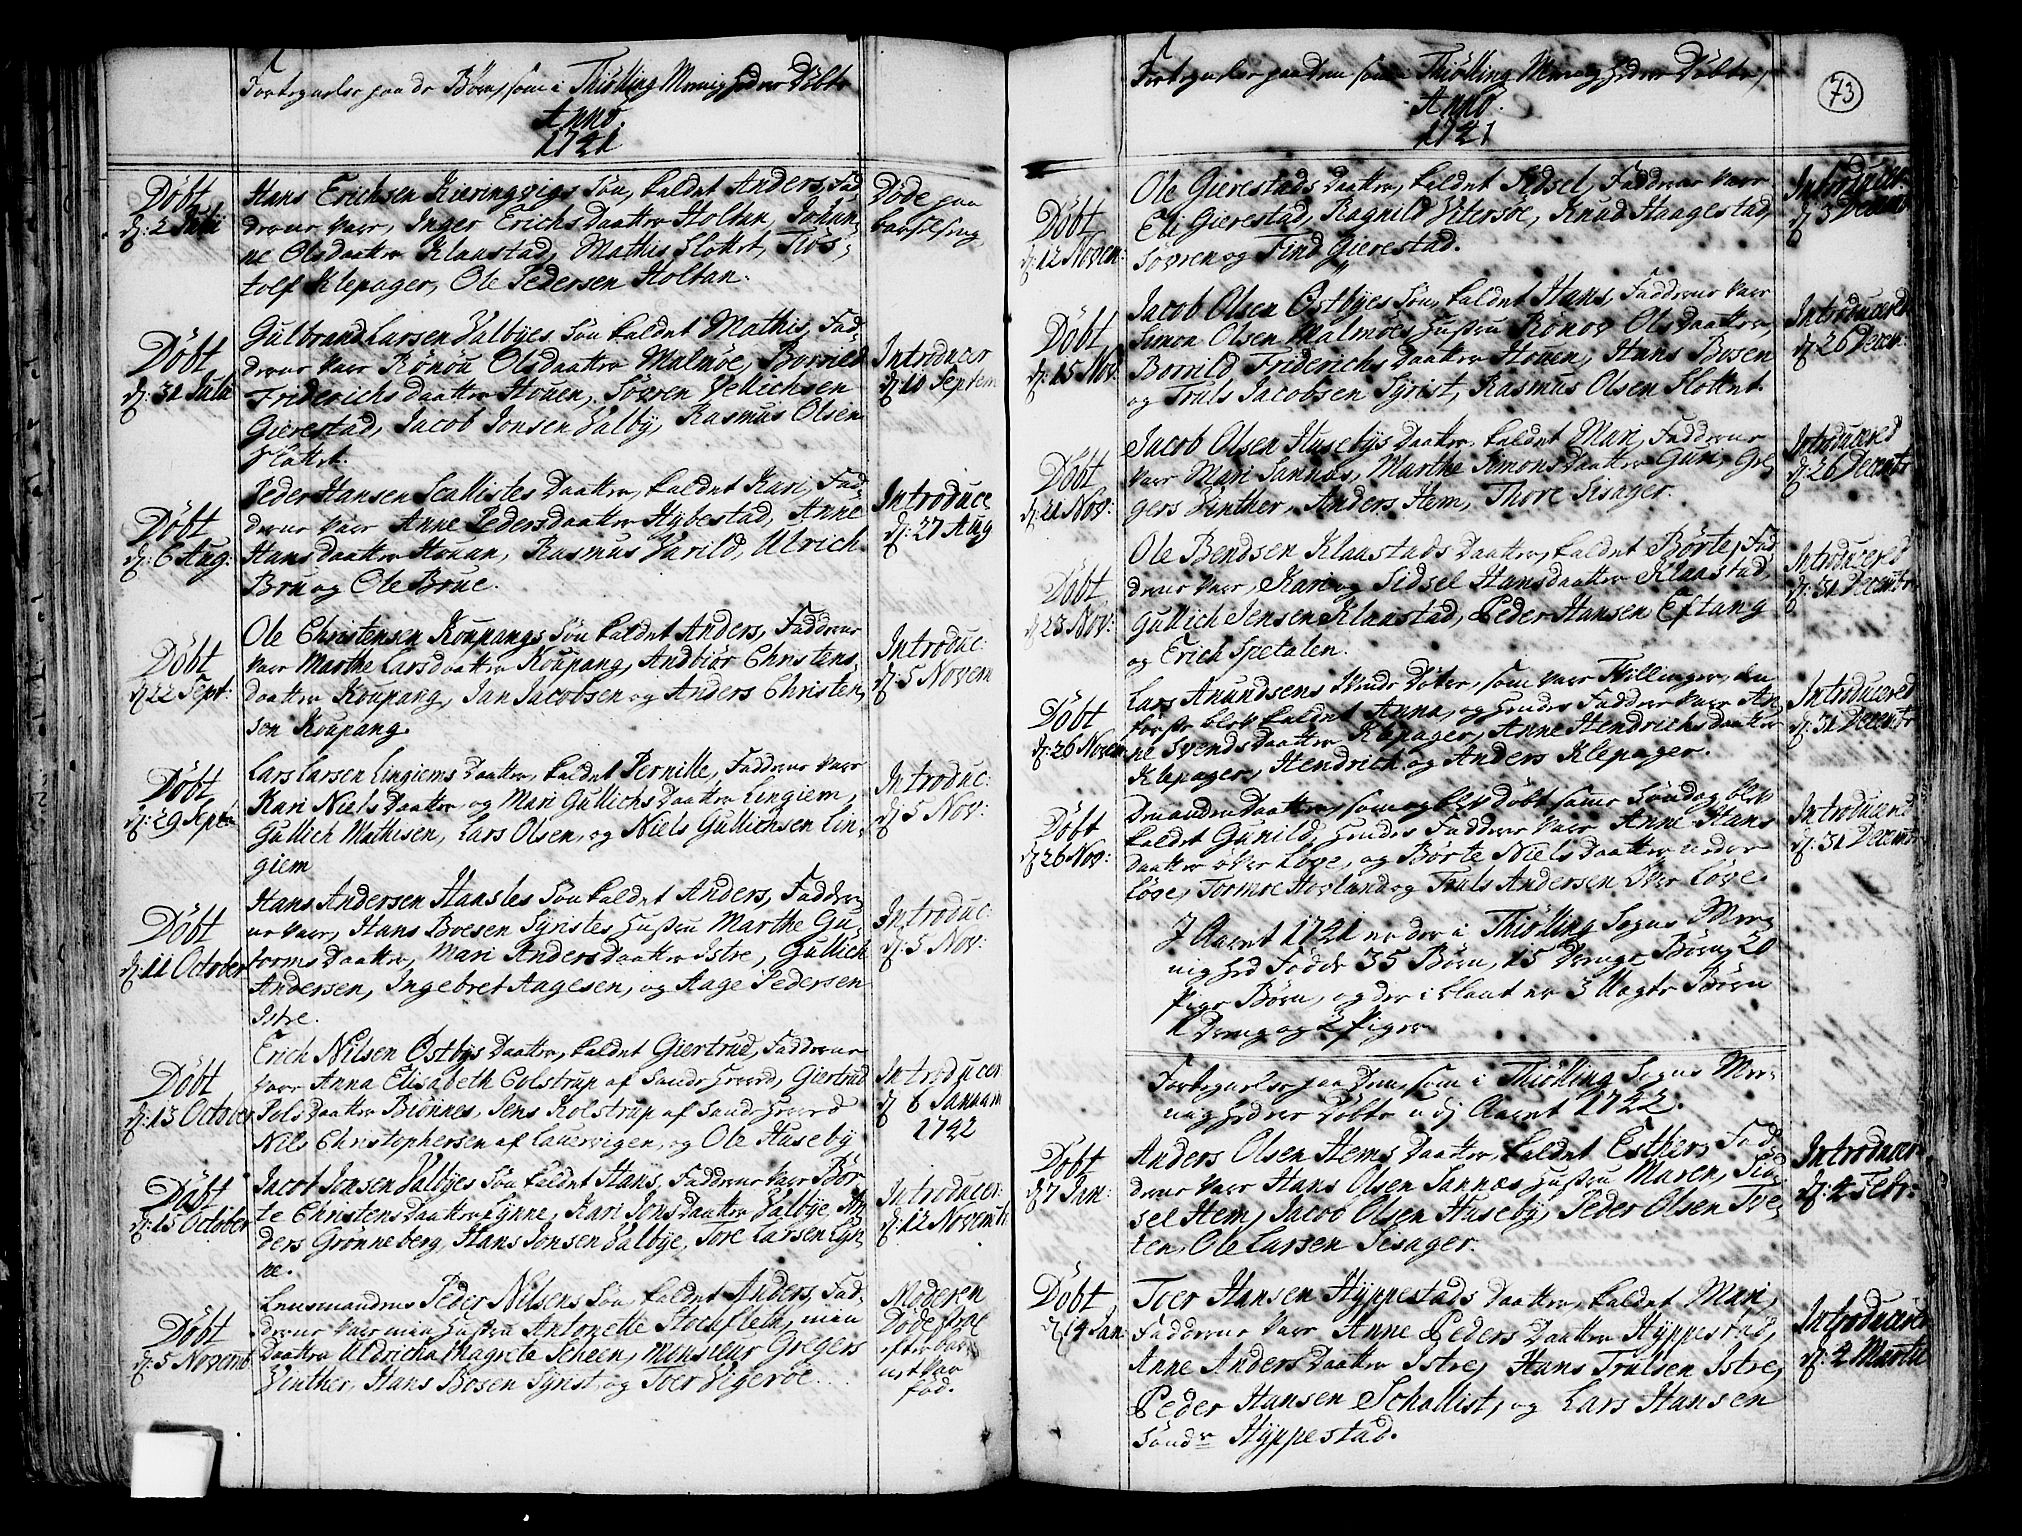 Fortegnelse paa de Børn, som i Thiølling Menighed er Døbte
Anno.
1741
Døbt
d: 2 Julii
Hans Erichsen Kieringvigs Søn, kaldet Anders, Fad-
derne var, Inger Erichs Daatter Holtan, Johan-
ne Olsdaatter Klaastad, Mathis Slottet, Tiøs-
tolf Klepager, Ole Pedersen Holtan.
Døde paa
barselseng
Døbt
d: 31 Julii
Gulbrand Larsen Valbyes Søn kaldet Mathis, Fad-
derne var Rønøu Olsdaatter Malmøe, Borrild
Friderichs Daatter Houen, Søvren Vellichsen
Gierestad, Jacob Jonsen Valby, Rasmus Olsen
Slottet.
Introducer
d: 10 Septem
Døbt
d: 6 Aug:
Peder Hansen Scallistes Daatter, kaldet Kari, Fad-
derne var Anne Pedersdaatter Hybestad, Anne
Hansdaatter Houan, Rasmus Varild, Ulrich
Bru og Ole Brue.
Introduce
d: 27 Aug
Døbt
d: 22 Sept:
Ole Christensen Koupangs Søn kaldet Anders, Fadderne
var Marthe Larsdaatter Koupang, Andbiør Christens-
Daatter Koupang, Jan Jacobsen og Anders Christen-
sen Koupang.
Introduc:
d: 5 Novem
Døbt
d: 29 Septe
Lars Larsen Lingiems Daatter, kaldet Pernille, Fadderne var
Kari Niels Daatter, og Mari Gullichs Daatter Lingiem,
Gullich Mathisen, Lars Olsen, og Niels Gullichsen Lin-
giem
Introduc:
d: 5 Nov:
Døbt
d: 11 October
Hans Andersen Haasles Søn kaldet Anders, Fadder-
ne var, Hans Boesen Syristes Hustru Marthe Gu-
torms Daatter, Mari Anders Daatter Istre, Gullich
Andersen, Ingebret Aagesen, og Aage Pedersen
Istre.
Introduc:
d: 5 Nov:
Døbt
d: 13 October
Erich Nilsen Østbys Daatter, kaldet Giertrud, Fadderne
var Anna Elisabeth Colstrup af Sandehered, Giertrud
Pols Daatter Biønnes, Jens Kolstrup af Sandehered
Nils Christophersen af Lauervigen, og Ole Huseby
Introducer
d 6 Januam
1742
Døbt
d: 15 October
Jacob Jonsen Valbyes Søn kaldet Hans, Fadderne var Bør-
te Christens Daatter Lynne, Kari Jons Daatter Valbye, An-
ders Grønneberg, Hans Jonsen Valbye, Tore Larsen Lyn-
ne.
Introducer
d 12 Novemb
Døbt
d: 5 Novemb
Lensmandens Peder Nilsens Søn, kaldet Anders, Fad-
derne var min Hustru Antonette Stochfleth, min
Daatter Uldricha Magrete Scheen, Monsieur Gregers
Vinther, Hans Bosen Syrist, og Toer Vigerøe.
Moderen
Døde strax
efter barnet var
fød.
Fortegnelse paa dem som i Thiølling Menighed er Døbte,
Anno.
1741
73
Døbt
d: 12 Novem:
Ole Gierestads Daatter, kaldet Sidsel, Fadderne var
Eli Gierestad, Ragnild Vitersøe, Knud Haagestad,
Søvren og Find Gierestad.
Introducer:
d: 3 Decemb
Døbt
d: 15 Nov
Jacob Olsen Østbyes Søn, kaldet Hans, Fadderne var
Simon Olsen Malmøes Hustru Rønov Olsdaatter,
Borrild Friderichs Daatter Houen, Hans Bosen
og Truls Jacobsen Syrist, Rasmus Olsen Slottet.
Introducered
d: 26 Decem:
Døbt
d: 21 Nov:
Jacob Olsen Husebys Daatter, kaldet Mari, Fadderne
var Mari Sannæs, Marthe Simons Daatter Guri, Gre-
gers Vinther, Anders Hem, Thore Sisager.
Introducered
d: 26 Decemb
Døbt
d: 23 Nov:
Ole Bendsen Klaastads Daatter, kaldet Børte, Fad-
derne var, Kari og Sidsel Hansdaatter Klaastad,
Gullich Jensen Klaastad, Peder Hansen Eftang
og Erich Spetalen.
Introducered
d: 31 Decembr
Døbt
d: 26 Novem
Lars Anundsens tvende Døtre, som var Thvillinger, den
første blev kaldet Anna, og hendes Faddere var An-
ne Svends Daatter Klepager, Anne Hendrichs Daatter
Klepager, Hendrich og Anders Klepager.
Introducered
d: 31 Decembr
Døbt
d: 26 Nov:
Den anden Daatter, som og blev døbt samme Søndag blev
kaldet Gunild, hendes Faddere var Anne Hans
Daatter over Løve, og Børte Niels Daatter under
Løve, Tormoe Hovland og Truls Andersen Over Løve.
Introducered
d: 31 Decembr
I Aaret 1741 er der i Thiølling Sogns Me-
nighed Fødde 35 Børn, 15 Drenge Børn, 20
Pige Børn, og der iblant er 3 Uægte Børn
1 Dreng og 2 Piger.
Fortegnelse paa dem, som i Thiølling Sogns Me-
nighed er Døbte udj Aaret 1742.
Døbt
d 7 Jan:
Anders Olsen Hems Daatter, kaldet Esther, Fad-
derne var Hans Olsen Sannæs Hustru Maren, Sid-
sel Hem, Jacob Olsen Huseby, Peder Olsen Tve-
ten, Ole Larsen Sesager.
Introducer
d: 4 Febr:
Døbt
d 14 Jan
Toer Hansen Hyppestads Daatter, kaldet Mari,
Fadderne var Anne Peders Daatter Hyppestad,
Anne Anders Daatter Istre, Hans Trulsen Istre,
Peder Hansen Schallist, og Lars Hansen
Søndr Hyppestad.
Introducered
d: 4 Martii